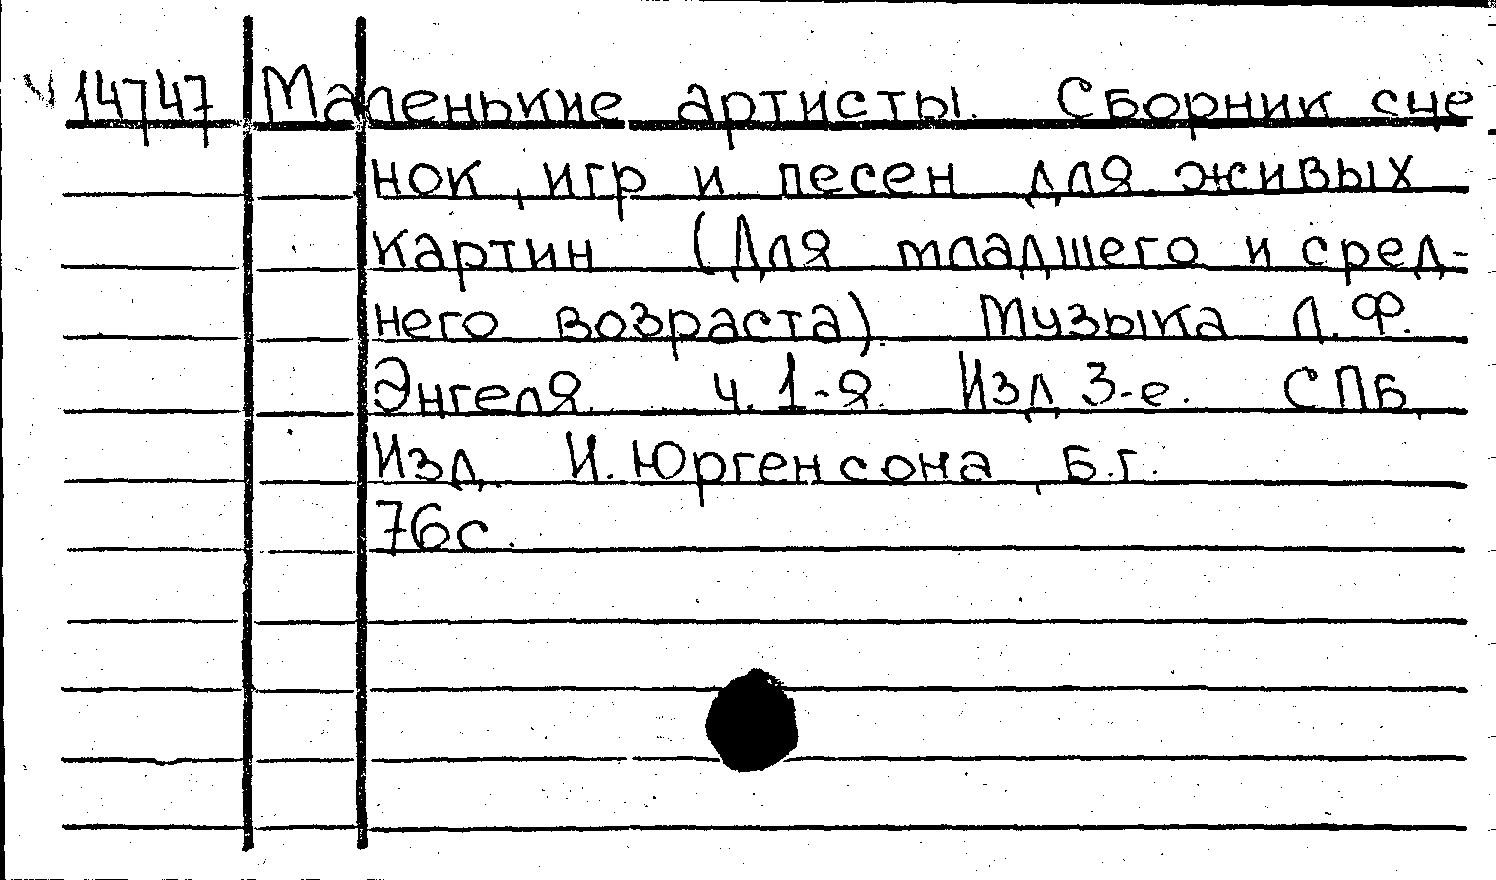 14747 Маленькие артисты. Сборник сце
нок, игр и песен для живых
картин (Для младшего и сред-
него возраста). Музыка Л.Ф.
Энгеля. ч. 1-я. Изд. 3-е. СПБ,
Изд. И. Юргенсона, б.г.
76с.